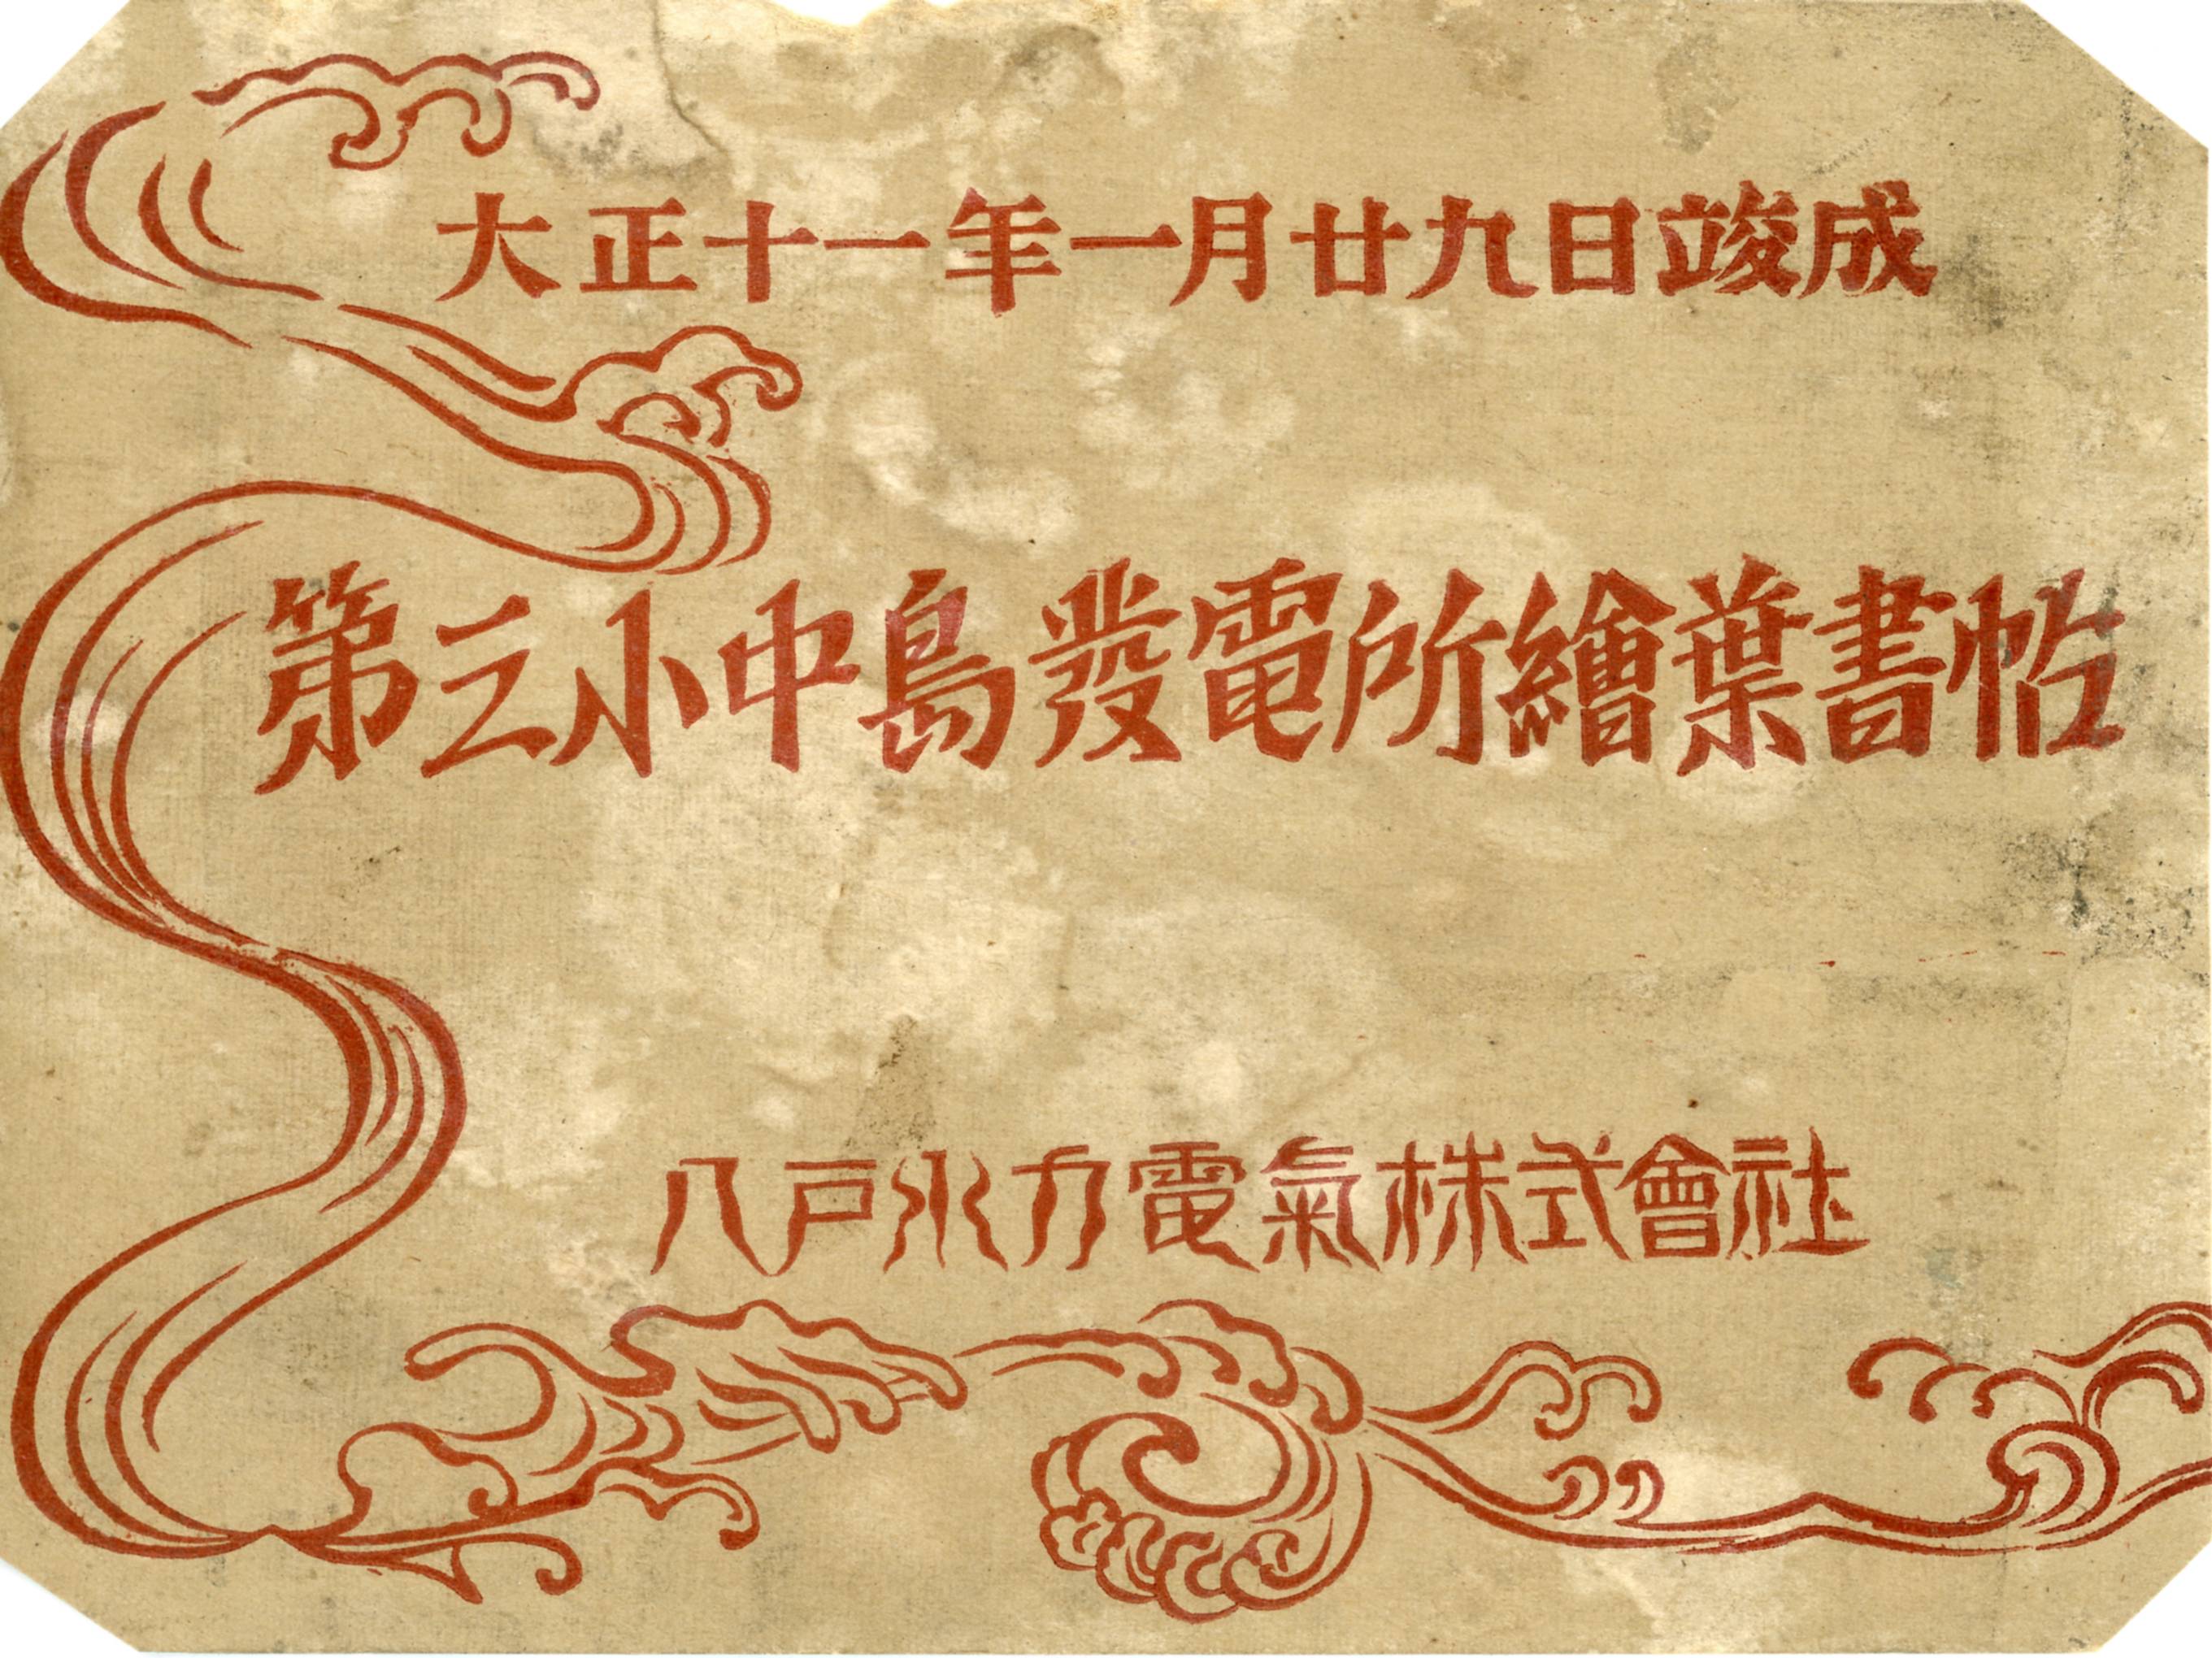 大正十一年一月廿九日竣成
第三小中島發電所繪葉書帖
八戸水力電氣株式會社